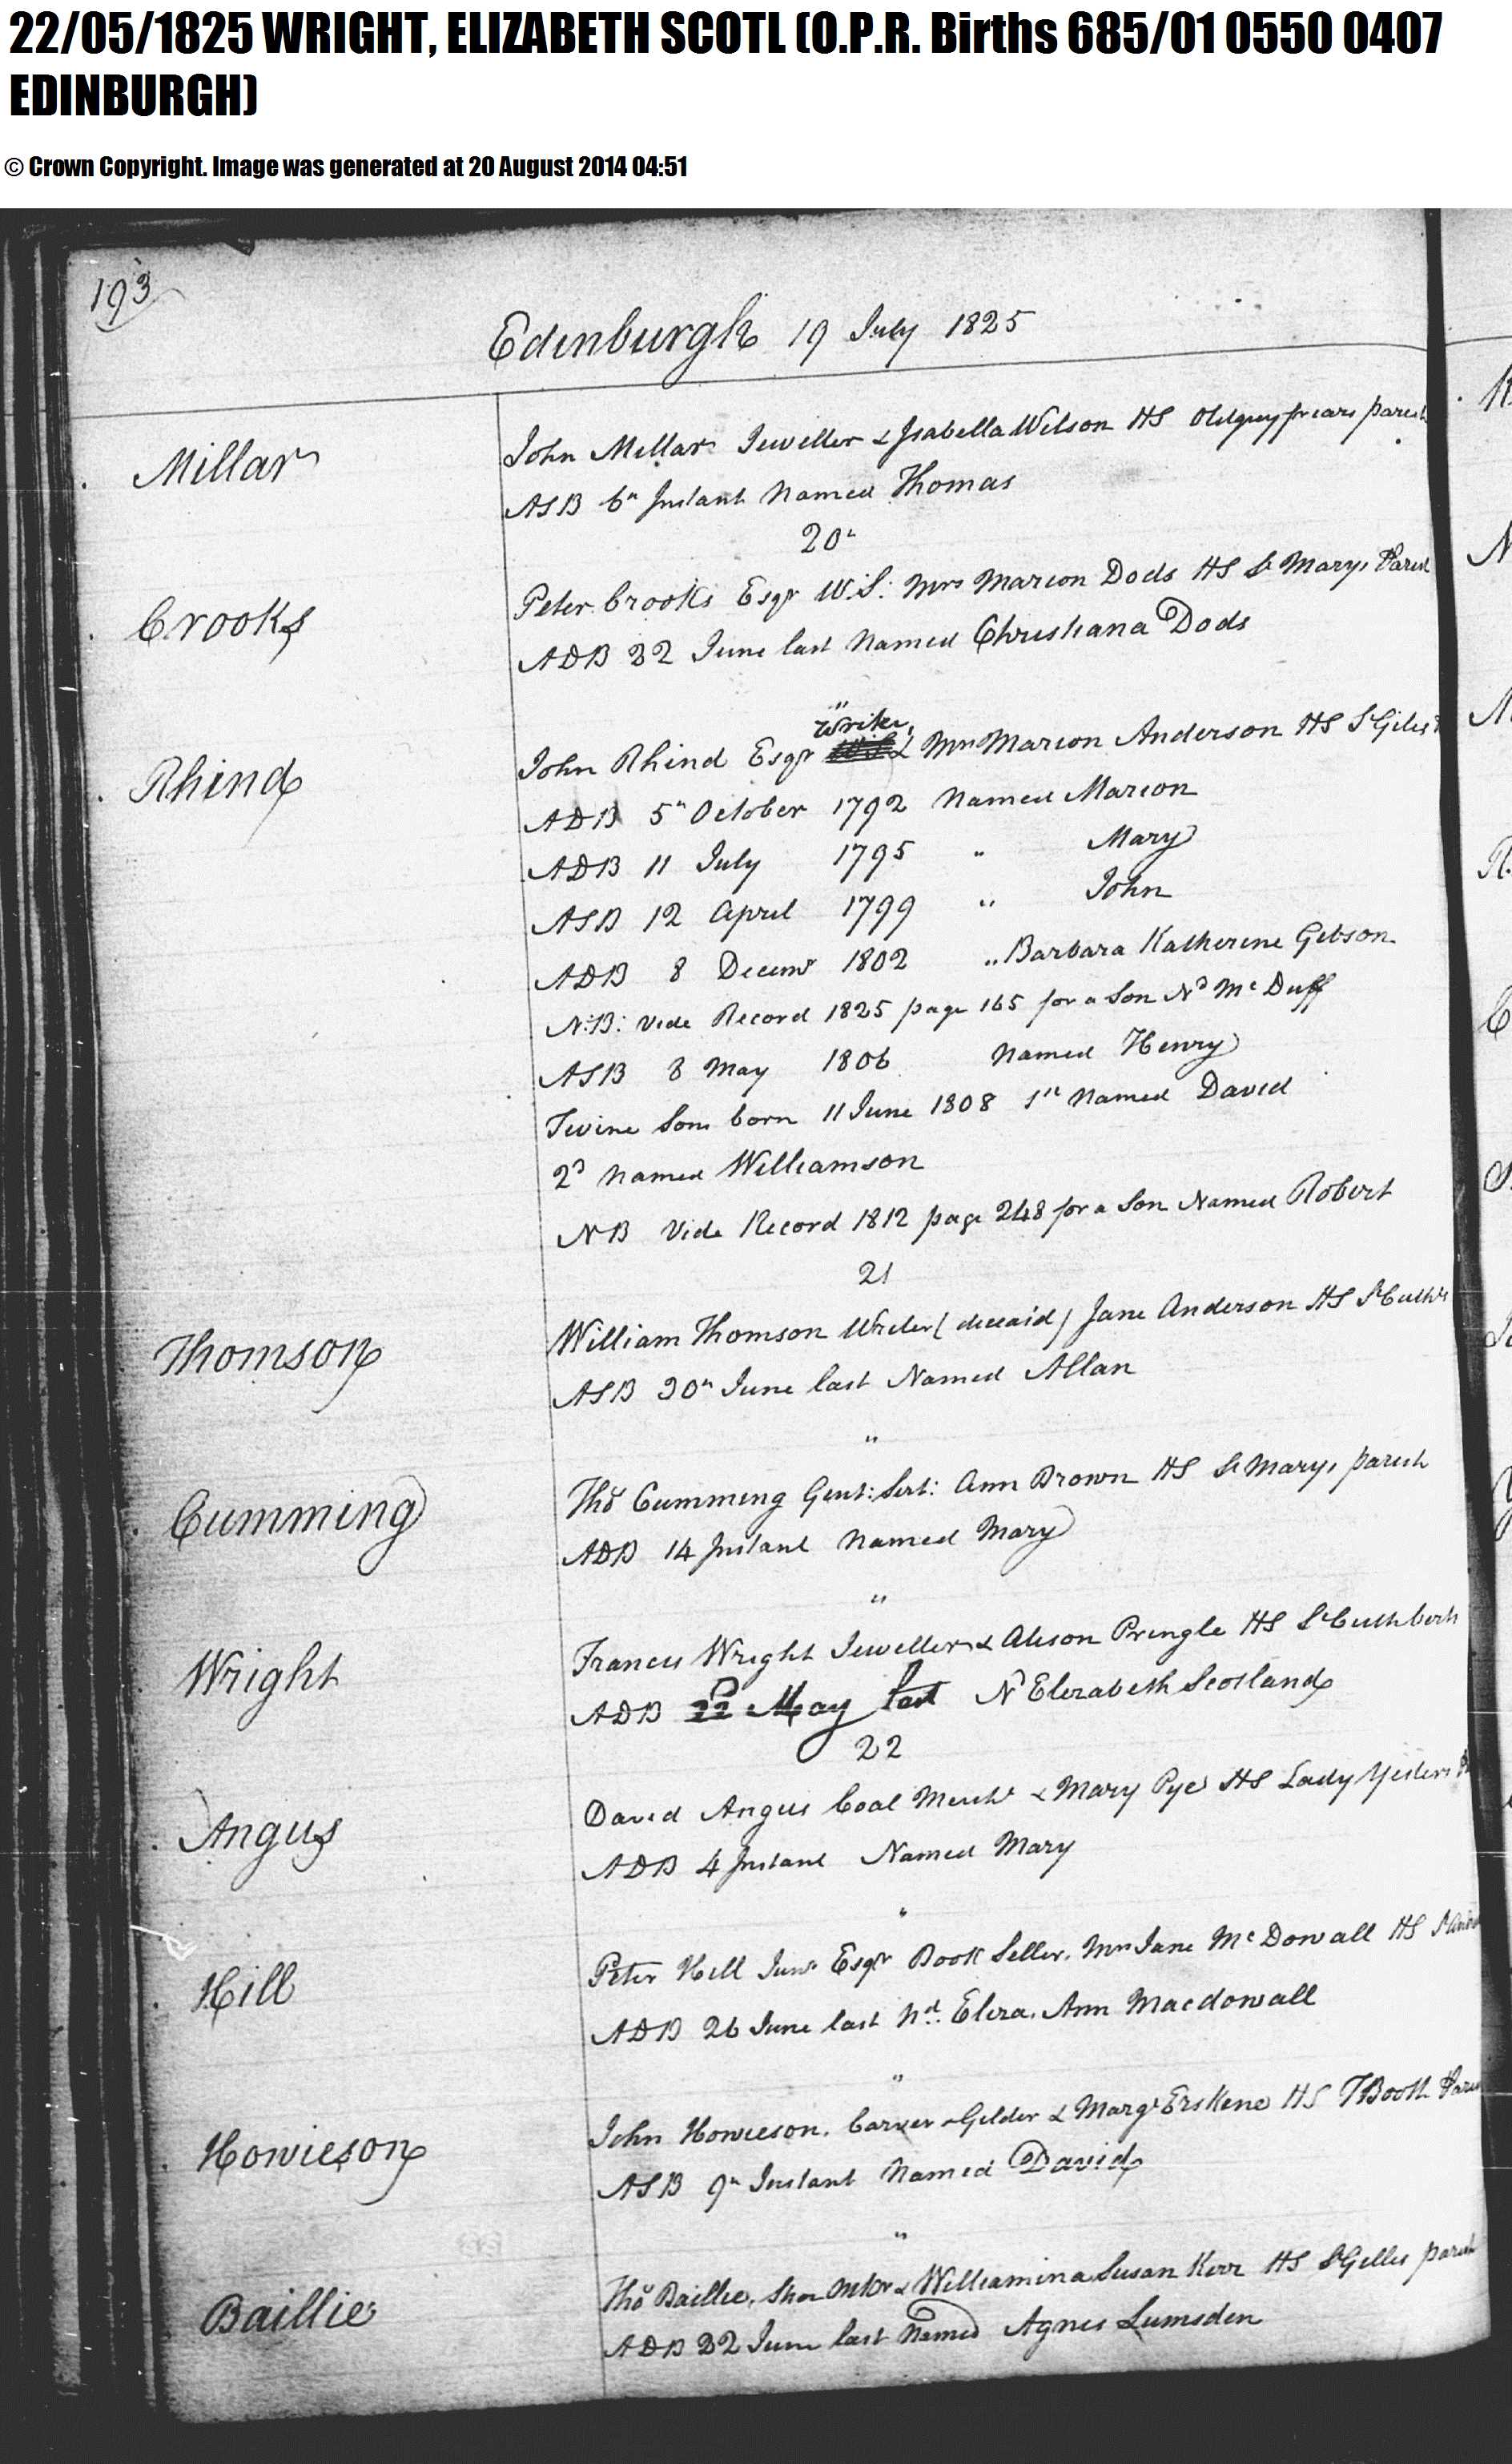 22/05/1825 WRIGHT, ELIZABETH SCOTL (O.P.R. Births 685/01 0550 0407
EDINBURGH)
© Crown Copyright. Image was generated at 20 August 2014 04:51
193
Edinburgh 19 July 1825
Millar
John Millar Jeweller & Isabella Wilson HS Oldgreyfriars parish
ASB 6th Instant Named Thomas
20th
Crooks
Peter Crooks Esqr W.S. Mrs Marion Dods HS St Marys Parish
ADB 22 June last Named Christiana Dods
Writer
Rhind
John Rhind Esqr & Mrs Marion Anderson HS St Giles
ADB 5th October 1792 Named Marion
ADB 11 July 1795 " Mary
ASB 12 April 1799 " John
ADB 8 Decemr 1802 " Barbara Katherine Gibson
N:B: Vide Record 1825 page 165 for a Son Nd Mc Duff
ASB 8 May 1806 Named Henry
Twine Sons born 11 June 1808 1st Named David
2d Named Williamson
NB Vide Record 1812 page 248 for a Son Named Robert
21
Thomson
William Thomson Writer (deceasd) Jane Anderson HS St Cuthts
ASB 30th June last Named Allan
"
Cumming
Thos Cumming Gent: Sert: Ann Brown HS St Marys parish
ADB 14 Instant Named Mary
"
Wright
Francis Wright Jeweller & Alison Pringle HS St Cuthberts
ADB 22 May last Nd Elizabeth Scotland
22
Angus
David Angus Coal Mercht & Mary Pye HS Lady Yesters
ADB 4 Instant Named Mary
"
Hill
Peter Hill Junr Esqr Book Seller. Mrs Jane Mc Dowall HS St Andw
ADB 26 June last Nd. Eliza. Ann Macdowall
"
Howieson
John Howieson. Carver & Gilder & Margt Erskine HS TBooth Parish
ASB 9th Instant Named David
"
Baillie
Thos Baillie, Shoe Mkr & Williamina Susan Kerr HS St Gilles parish
ADB 22 June last Named Agnes Lumsden